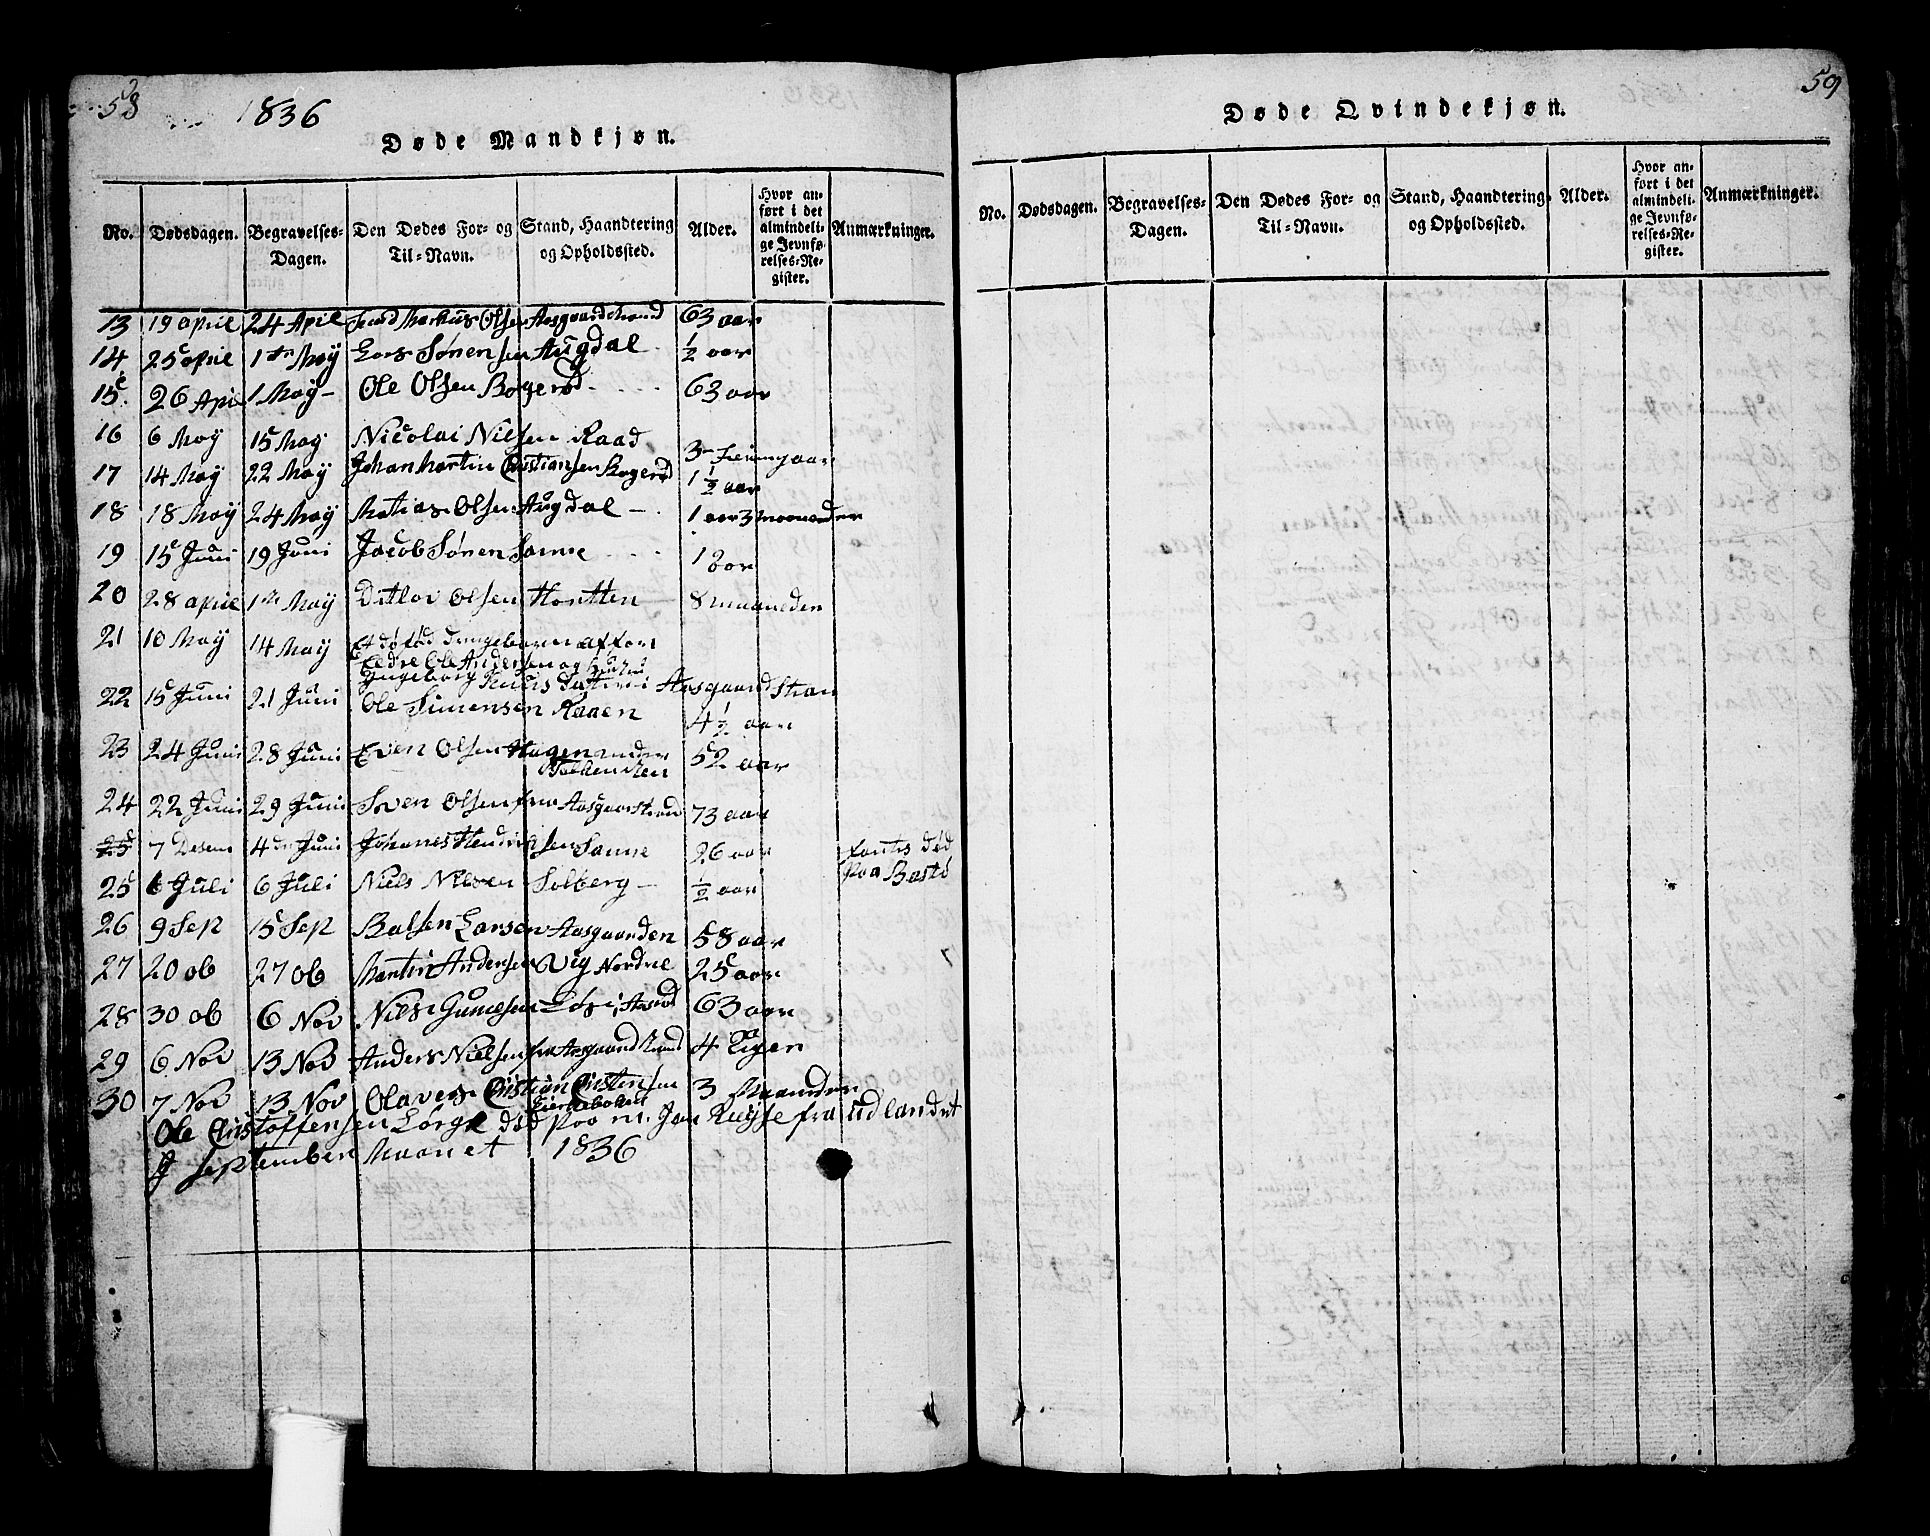 58
1836
Døde Mandkjøn.
No. Dødsdagen. Begravelses-Dagen. Den Dødes For- og Til-Navn. Stand, Haandtering og Opholdssted. Alder. Hvor anført i det almindelige Jevnførelses-Register. Anmærkninger.
13 19 april 24 April Markus Olsen Aasgaardstrand 63 aar
14 25 april 1ste May Lars Sørensen Augdal ½ aar
15 26 Apr 1 May Ole Olsen Bogerød 63 aar
16 6 May 15 May Nicolai Nielsen Raad 3
17 14 May 22 May Johan Martin Cristiansen Bogerød 1½ aar
18 18 May 24 May Matias Olsen Augdal 1 aar 3 maaneder
19 15 Juni 19 Juni Jacob Sørensen Sanne 1 aar
20 28 april 1ste May Ditlov Olsen Hortten 8 maaneder
21 10 May 14 May Et døfød drengebarn af for
Eldre Ole Andersen og hustru
Ingeborg Aasgaardstran
22 15 Juni 21 Juni Ole Simensen Raaen 4½ aar
23 24 Juni 28 Juni Even Olsen Hagen under
52 aar
24 22 Juni 29 Juni Sven Olsen fra Aasgaarstrand 73 aar
25 7 Desem 4de Juni Johanes Hendriksen Sanne 26 aar fantis død
paa Bastø
25 6 Juli 6 Juli Niels Nielsen Solberg ½ aar
26 9 Sep 15 Sep Larsen Aasgaarden 58 aar
27 20 ob 27 ob Martin Andersen Vig Nordre 25 aar
28 30 ob 6 Nov Niels 63 aar
29 6 Nov 13 Nov Anders Nielsen fra Aasgaardstrand 4
30 7 Nov 13 Nov Olaves Cristian Cristensen 3 Maaneder
Kirkebaken
Ole Cristoffensen død paa en fra udlandet
J September Maanet 1836
59
Døde Qvindekjøn.
No. Dødsdagen. Begravelses-Dagen. Den Dødes For- og Til-Navn. Stand, Haandtering og Opholdssted. Alder. Hvor anført i det almindelige Jevnførelses-Register. Anmærkninger.